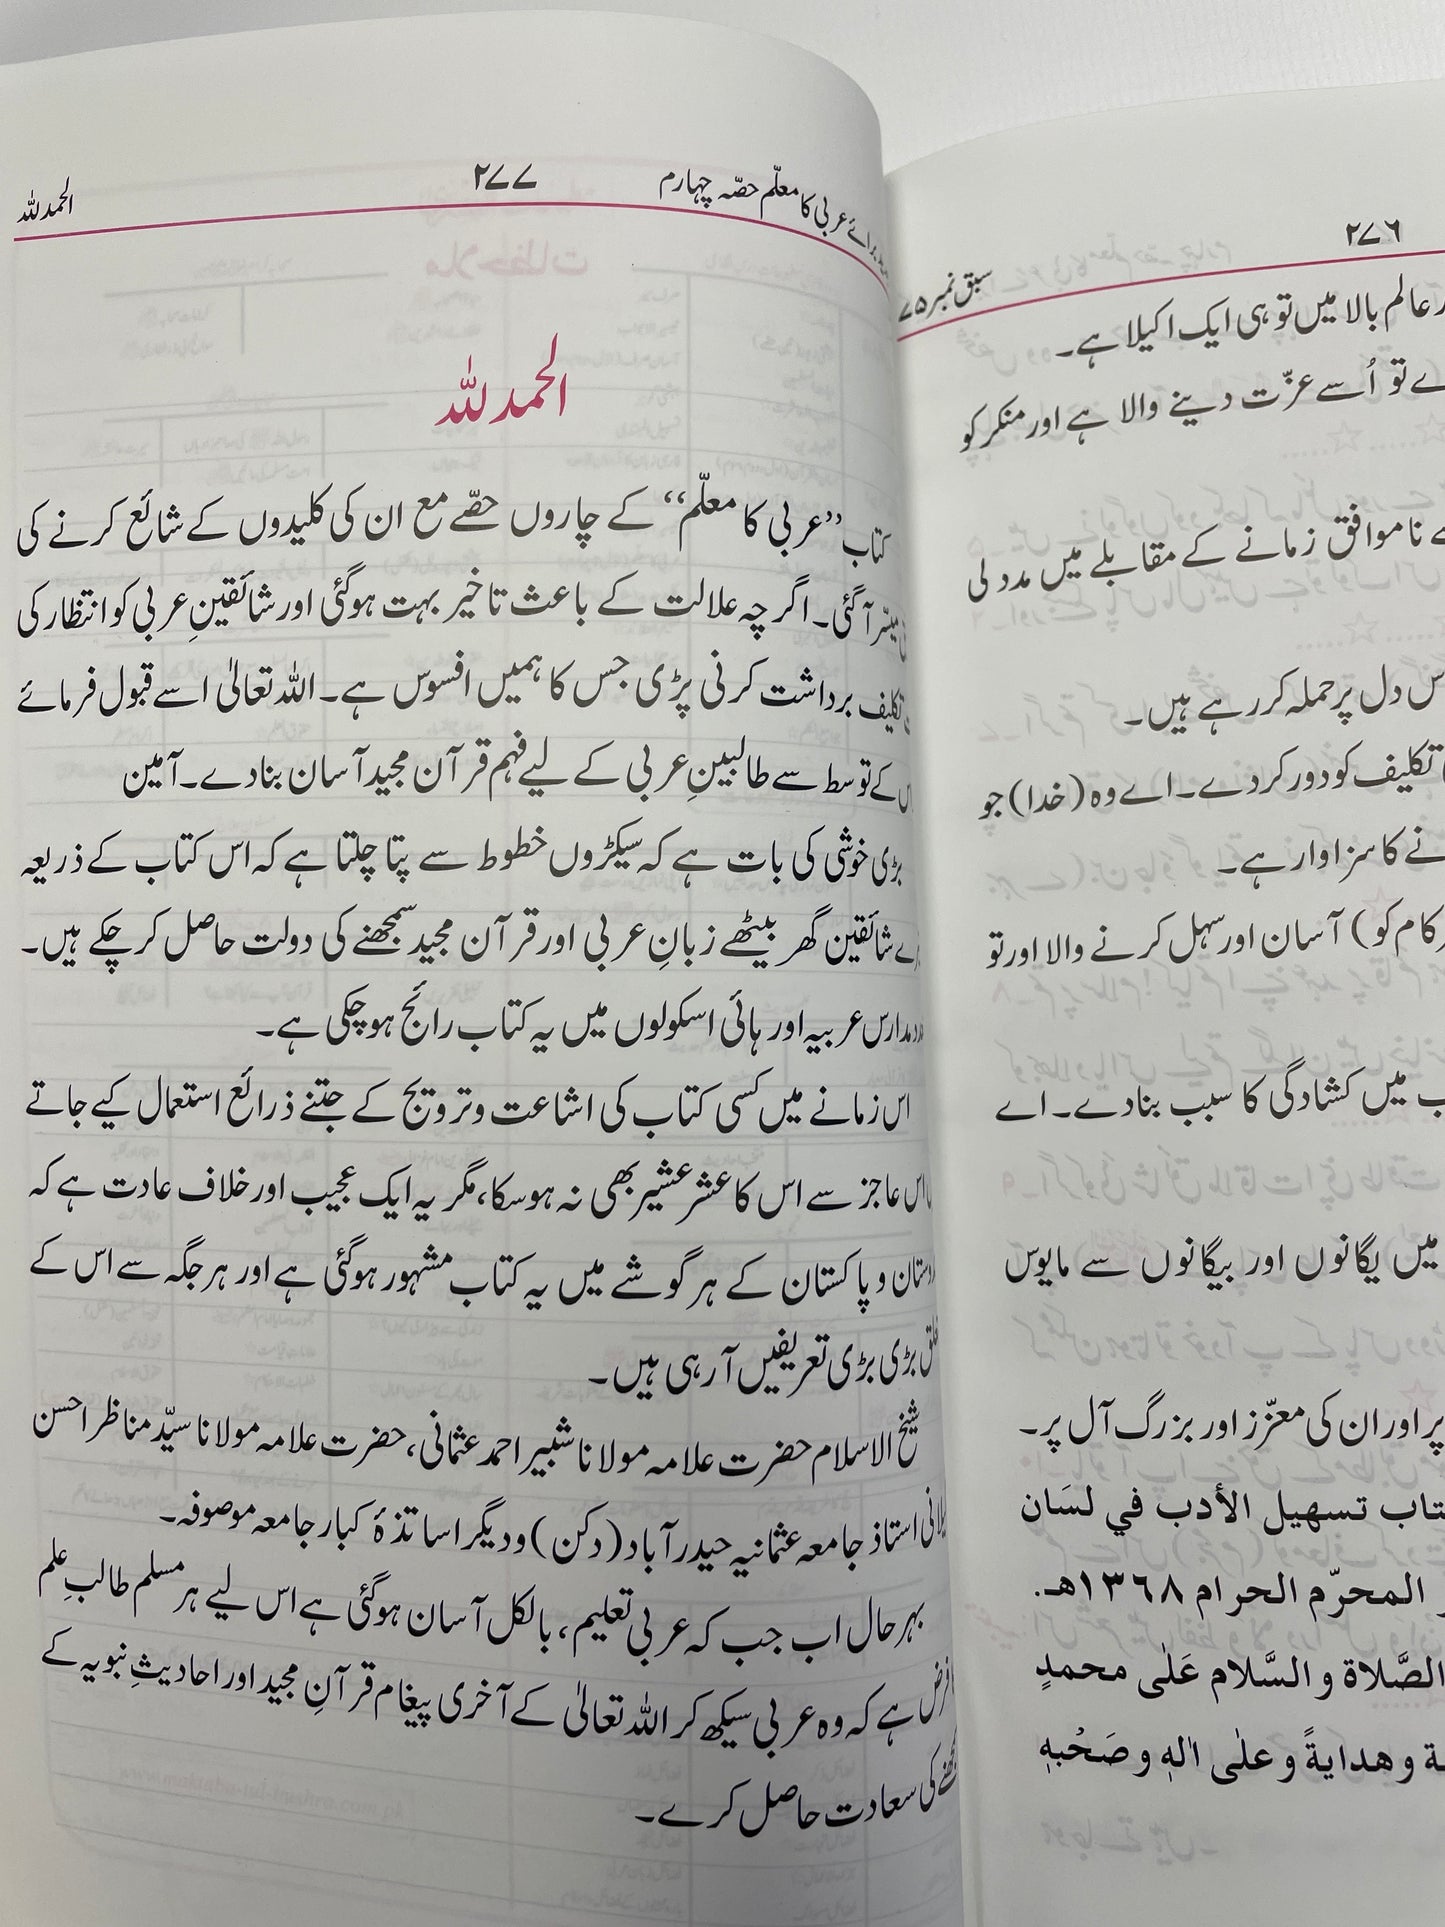 ۲۷۶
سبق نمبر ۷۵
عالم بالا میں تو ہی ایک اکیلا ہے۔
تو اُسے عزّت دینے والا ہے اور منکر کو
نا موافق زمانے کے مقابلے میں مدد لی
دل پر حملہ کر رہے ہیں۔
تکلیف کو دور کردے۔ اے وہ (خدا) جو
نے کا سزاوار ہے۔
کام کو) آسان اور سہل کرنے والا اور تو
میں کشادگی کا سبب بنادے۔ اے
میں یگانوں اور بیگانوں سے مایوس
پر اور ان کی معزّز اور بزرگ آل پر۔
تسهيل الأدب في لسَان
المحرّم الحرام ١٣٦٨هـ.
الصَّلاة و السَّلام عَلٰى محمدٍ
و هدايةً و علٰى اٰلهٖ و صَحْبهٖ
عربی کا معلّم حصّہ چہارم
۲۷۷
الحمد للہ
الحمد للہ
کتاب ’’عربی کا معلّم‘‘ کے چاروں حصّے مع ان کی کلیدوں کے شائع کرنے کی
میسّر آگئی۔ اگرچہ علالت کے باعث تاخیر بہت ہوگئی اور شائقینِ عربی کو انتظار کی
تکلیف برداشت کرنی پڑی جس کا ہمیں افسوس ہے۔ اللہ تعالیٰ اسے قبول فرمائے
کے توسط سے طالبینِ عربی کے لیے فہم قرآن مجید آسان بنادے۔ آمین
بڑی خوشی کی بات ہے کہ سیکڑوں خطوط سے پتا چلتا ہے کہ اس کتاب کے ذریعہ
شائقین گھر بیٹھے زبانِ عربی اور قرآن مجید سمجھنے کی دولت حاصل کرچکے ہیں۔
مدارس عربیہ اور ہائی اسکولوں میں یہ کتاب رائج ہوچکی ہے۔
اس زمانے میں کسی کتاب کی اشاعت و ترویج کے جتنے ذرائع استعمال کیے جاتے
اس عاجز سے اس کا عشر عشیر بھی نہ ہوسکا، مگر یہ ایک عجیب اور خلاف عادت ہے کہ
و پاکستان کے ہر گوشے میں یہ کتاب مشہور ہوگئی ہے اور ہر جگہ سے اس کے
بڑی بڑی تعریفیں آرہی ہیں۔
شیخ الاسلام حضرت علامہ مولانا شبیر احمد عثمانی، حضرت علامہ مولانا سیّد مناظر احسن
استاذ جامعہ عثمانیہ حیدرآباد (دکن) و دیگر اساتذۂ کبار جامعہ موصوفہ۔
بہرحال اب جب کہ عربی تعلیم، بالکل آسان ہوگئی ہے اس لیے ہر مسلم طالبِ علم
فرض ہے کہ وہ عربی سیکھ کر اللہ تعالیٰ کے آخری پیغام قرآنِ مجید اور احادیثِ نبویہ کے
کی سعادت حاصل کرے۔